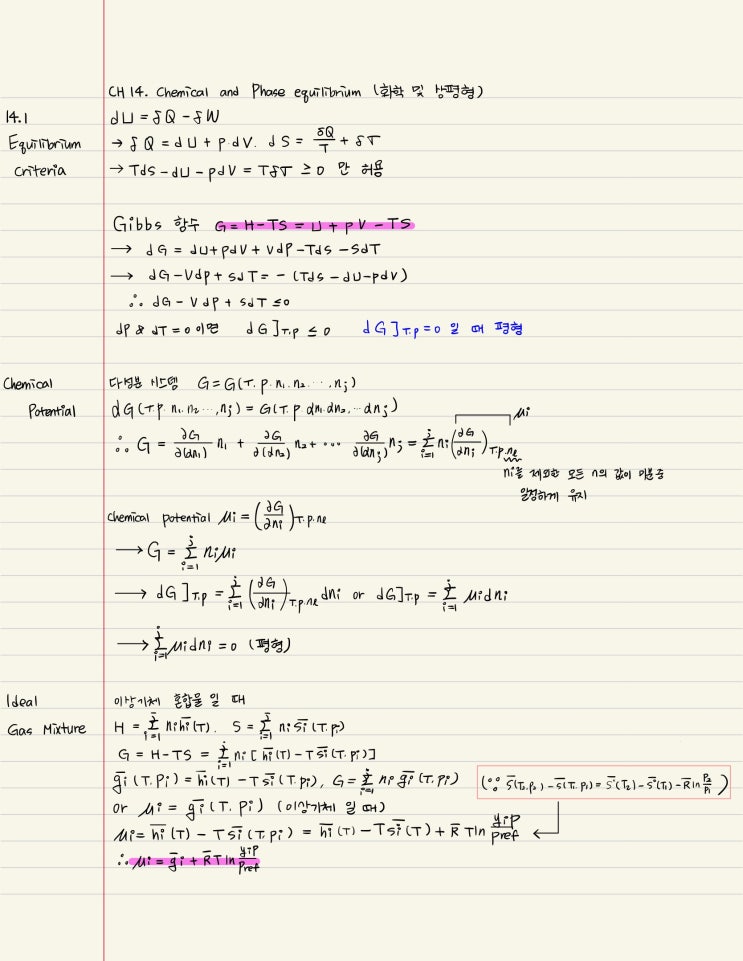 CH 14. Chemical and Phase equilibrium (화학 및 상평형)
14.1
Equilibrium
Criteria
dU = δQ - δW
→ δQ = dU + p·dV. dS = δQ/T + δσ
→ TdS - dU - pdV = Tδσ ≥ 0 만 허용
Gibbs 함수 G = H-TS = U + pV - TS
→ dG = dU+pdV + Vdp - Tds - SdT
→ dG - Vdp + sdT = - (Tds - dU - pdV)
∴ dG - Vdp + sdT ≤ 0
dP & dT = 0 이면 dG]T.p ≤ 0 dG]T.p = 0 일 때 평형
Chemical
Potential
다성분 시스템 G = G(T. p. n₁. n₂. ⋯, nⱼ)
dG(T.p. n₁. n₂ ⋯, nⱼ) = G(T. p. dn₁. dn₂. ⋯ dnⱼ)
μi
∴ G = ∂G/∂(dn₁) n₁ + ∂G/∂(dn₂) n₂ + ⋯ ∂G/∂(dnⱼ) nⱼ = Σ(i=1→j) ni (∂G/∂ni)T.p.nℓ
ni를 제외한 모든 n의 값이 미분 중
일정하게 유지
Chemical potential μi = (∂G/∂ni)T.p.nℓ
→ G = Σ(i=1→j) niμi
→ dG]T.p = Σ(i=1→j) (∂G/∂ni)T.p.nℓ dni or dG]T.p = Σ(i=1→j) μidni
→ Σ(i=1→j) μidni = 0 (평형)
Ideal
Gas Mixture
이상기체 혼합물 일 때
H = Σ(i=1→j) ni h̄i(T). S = Σ(i=1→j) ni s̄i(T. pi)
G = H-TS = Σ(i=1→j) ni [h̄i(T) - T s̄i(T. pi)]
ḡi(T. Pi) = h̄i(T) - T s̄i(T. pi), G = Σ(i=1→j) ni ḡi(T. pi) (∵ s̄(T₂.p₂) - s̄(T₁.p₁) = s̄°(T₂) - s̄°(T₁) - R̄ ln p₂/p₁)
or μi = ḡi(T. pi) (이상기체 일 때)
μi = h̄i(T) - T s̄i(T. pi) = h̄i(T) - T s̄i(T) + R̄ T ln yiP/pref
∴ μi = ḡi + R̄ T ln yiP/Pref